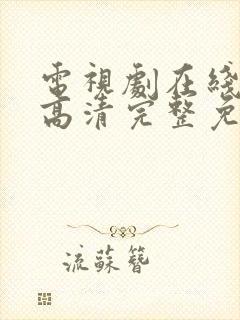 電視劇在綫
高清完整免
流蘇簪